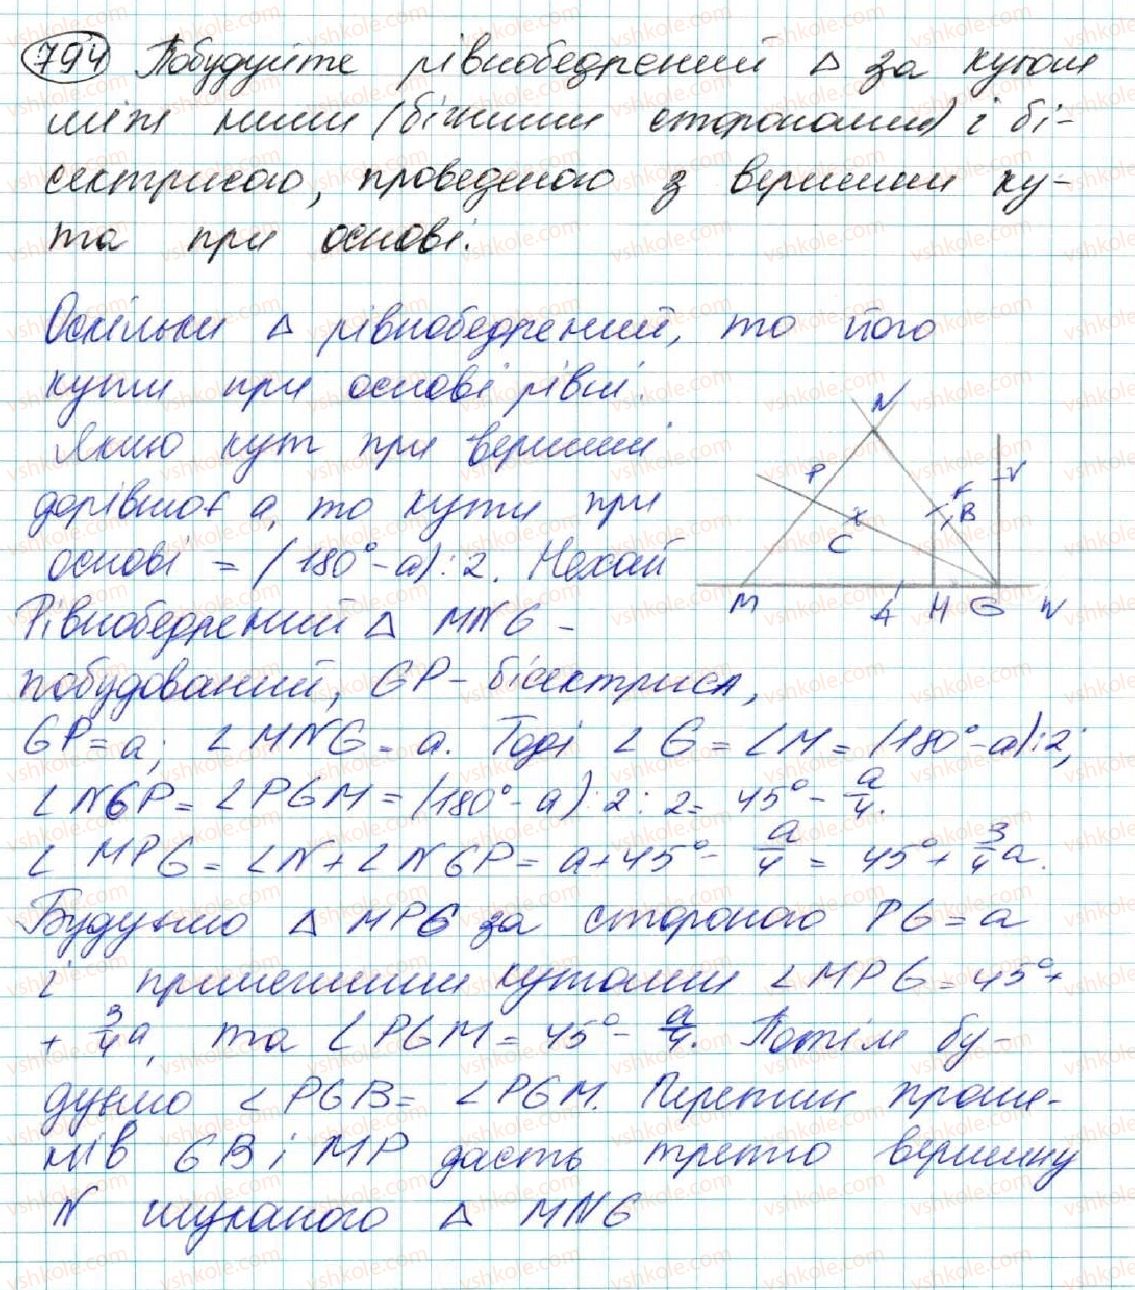 794 Побудуйте рівнобедрений Δ за кутом
між ними (бічними сторонами) і бі-
сектрисою, проведеною з вершини ку-
та при основі.
Оскільки Δ рівнобедрений, то його
кути при основі рівні.
Якщо кут при вершині
дорівнює a, то кути при
основі = (180° - a) : 2. Нехай
Рівнобедрений Δ MNG -
побудований, GP - бісектриса,
GP = a; ∠MNG = a. Тоді ∠G = ∠M = (180° - a) : 2;
∠NGP = ∠PGM = (180° - a) : 2 : 2 = 45° - a/4.
∠MPG = ∠N + ∠NGP = a + 45° - a/4 = 45° + 3/4 a.
Будуємо Δ MPG за стороною PG = a
і прилеглими кутами ∠MPG = 45° +
+ 3/4 a, та ∠PGM = 45° - a/4. Потім бу-
дуємо ∠PGB = ∠PGM. Перетин проме-
нів GB і MP дасть третю вершину
N шуканого Δ MNG
N
P
V
F
B
C
M
A
H
G
W
vshkole.com